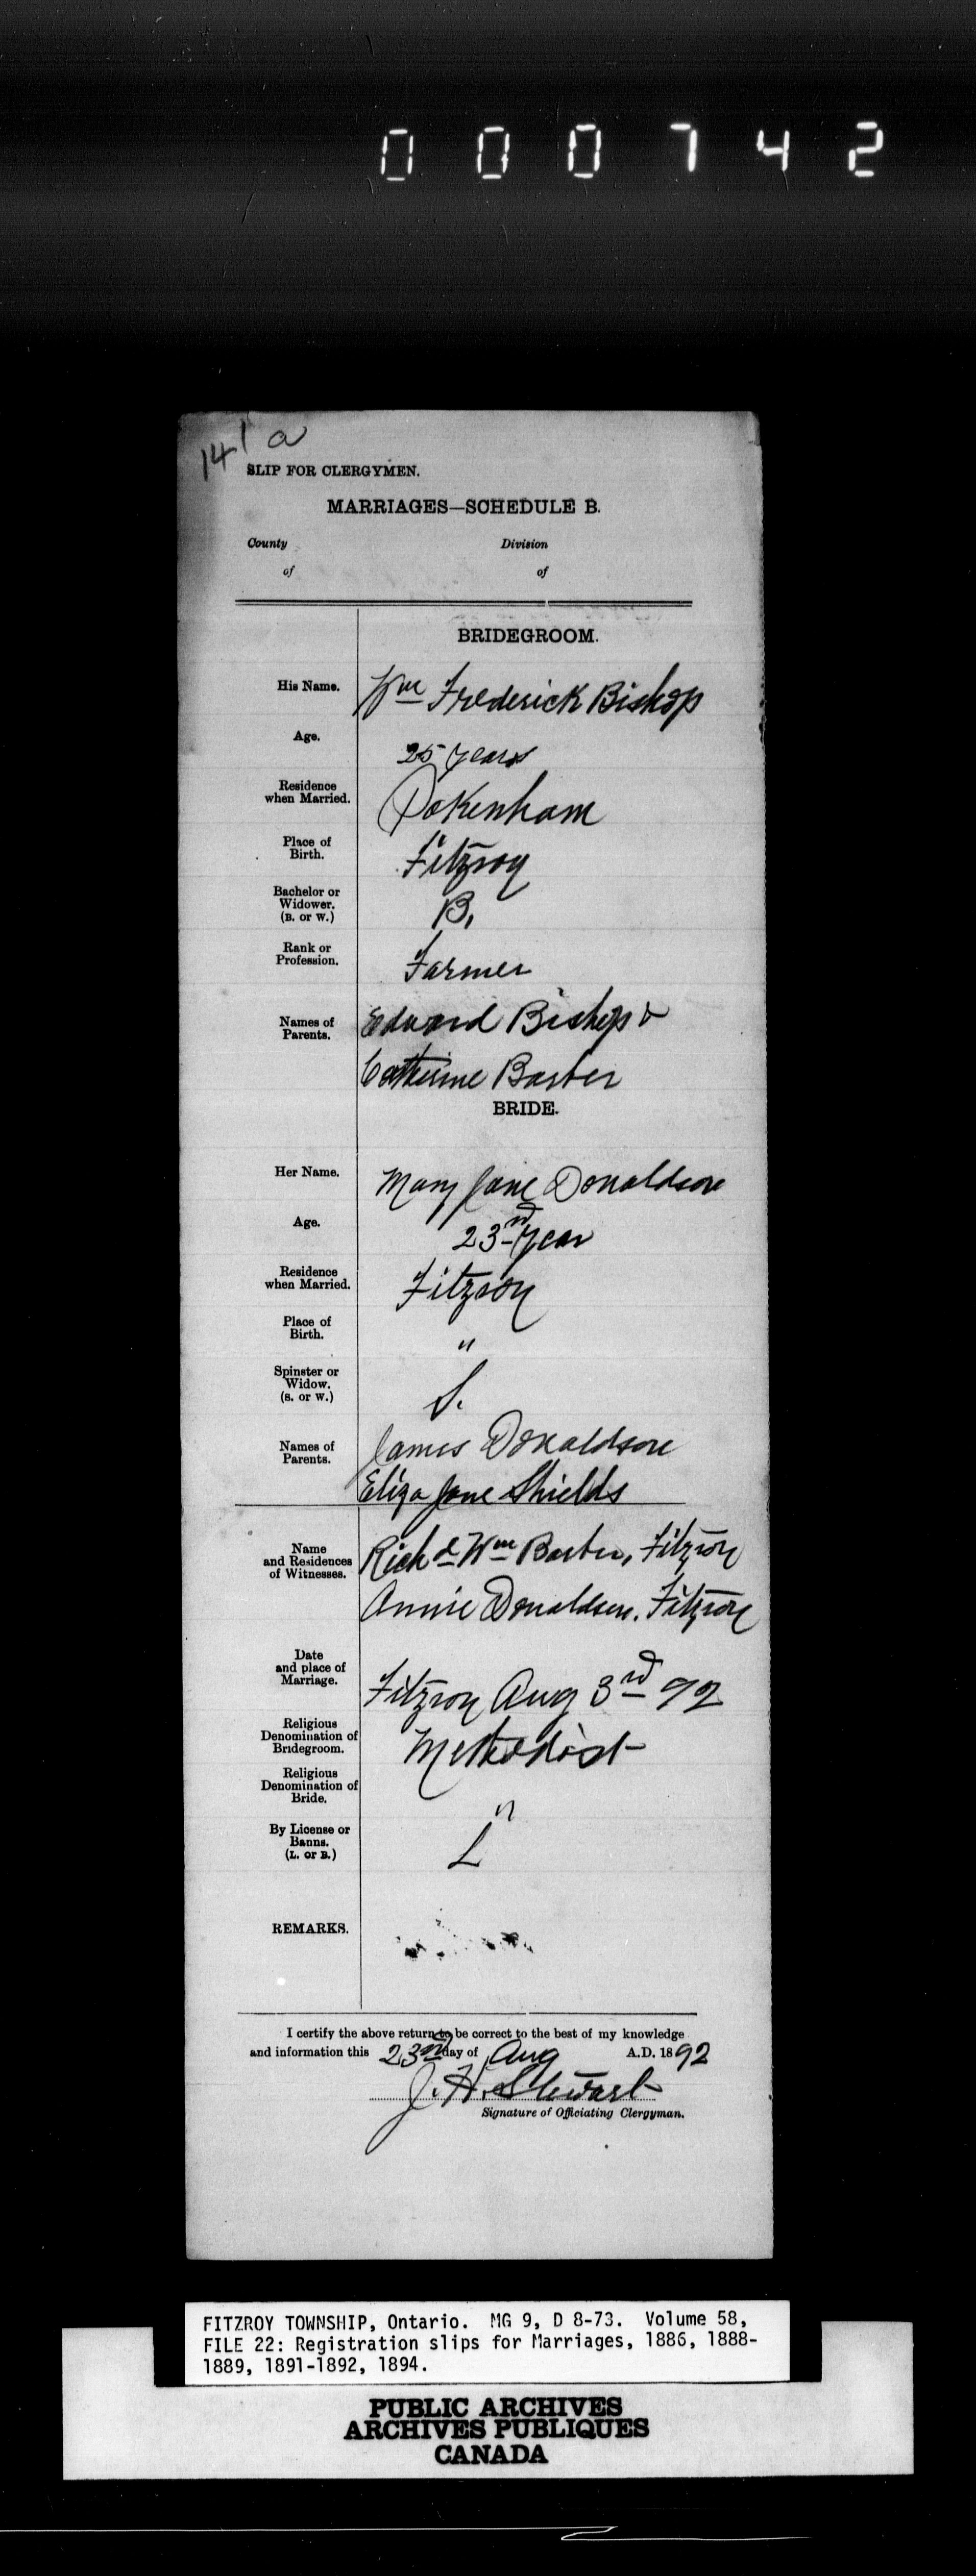 000742
141 a
SLIP FOR CLERGYMEN.
MARRIAGES—SCHEDULE B.
County Division
of of
BRIDEGROOM.
His Name. Wm Frederick Bishop
Age. 25 years
Residence when Married. Pakenham
Place of Birth. Fitzroy
Bachelor or Widower. (B. or W.) B.
Rank or Profession. Farmer
Names of Parents. Edward Bishop &
Catherine Barber
BRIDE.
Her Name. Mary Jane Donaldson
Age. 23rd year
Residence when Married. Fitzroy
Place of Birth. "
Spinster or Widow. (S. or W.) S.
Names of Parents. James Donaldson
Eliza Jane Shields
Name and Residences of Witnesses. Richd Wm Barber, Fitzroy
Annie Donaldson. Fitzroy
Date and place of Marriage. Fitzroy Aug 3rd 92
Religious Denomination of Bridegroom. Methodist
Religious Denomination of Bride. "
By License or Banns. (L. or B.) L
REMARKS.
I certify the above return to be correct to the best of my knowledge
and information this 23rd day of Aug A.D. 1892
J. H. Stewart
Signature of Officiating Clergyman.
FITZROY TOWNSHIP, Ontario. MG 9, D 8-73. Volume 58,
FILE 22: Registration slips for Marriages, 1886, 1888-
1889, 1891-1892, 1894.
PUBLIC ARCHIVES
ARCHIVES PUBLIQUES
CANADA